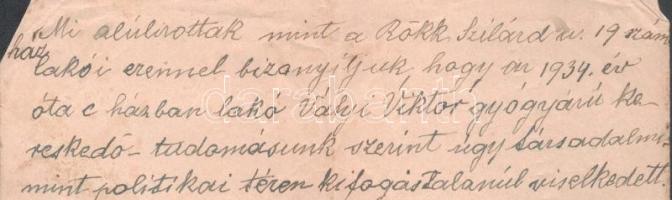 Mi alúlirottak mint a Rökk Szilárd u. 19 szám
ház lakói ezennel bizonyítjuk hogy az 1934. év
óta e házban lakó Vályi Viktor gyógyárú ke-
reskedő - tudomásunk szerint úgy társadalmi
mint politikai téren kifogástalanúl viselkedett.